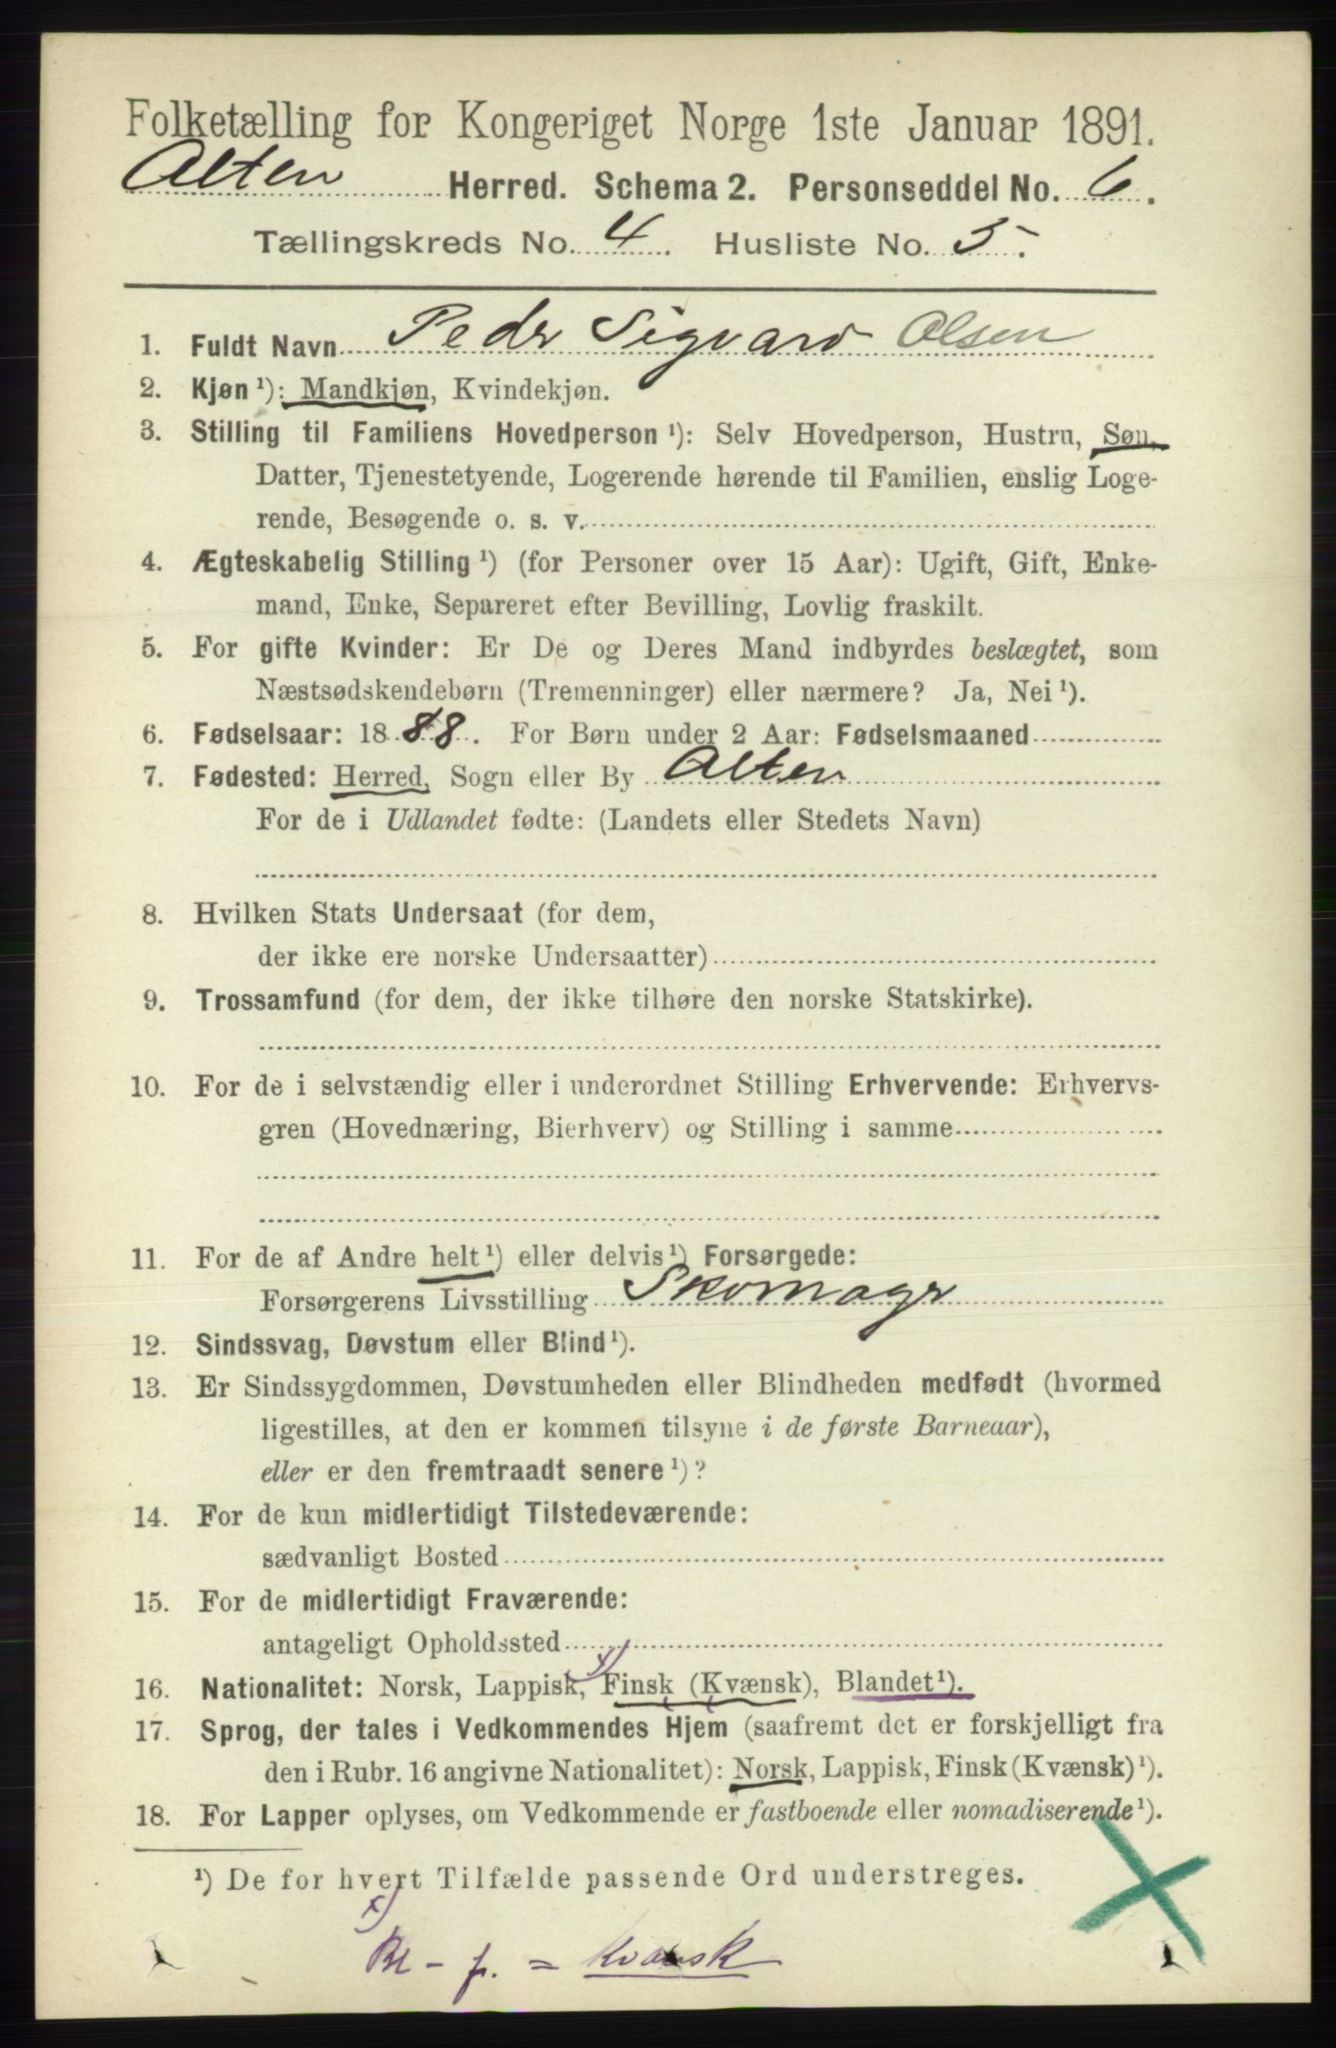 Folketælling for Kongeriget Norge 1ste Januar 1891.
Alten Herred. Schema 2. Personseddel No. 6.
Tællingskreds No. 4. Husliste No. 5.
1. Fuldt Navn Pedr Sigvard Olsen
2. Kjøn ¹): Mandkjøn, Kvindekjøn.
3. Stilling til Familiens Hovedperson ¹): Selv Hovedperson, Hustru, Søn,
Datter, Tjenestetyende, Logerende hørende til Familien, enslig Loge-
rende, Besøgende o. s. v.
4. Ægteskabelig Stilling ¹) (for Personer over 15 Aar): Ugift, Gift, Enke-
mand, Enke, Separeret efter Bevilling, Lovlig fraskilt.
5. For gifte Kvinder: Er De og Deres Mand indbyrdes beslægtet, som
Næstsødskendebørn (Tremenninger) eller nærmere? Ja, Nei ¹).
6. Fødselsaar: 1888. For Børn under 2 Aar: Fødselsmaaned
7. Fødested: Herred, Sogn eller By Alten
For de i Udlandet fødte: (Landets eller Stedets Navn)
8. Hvilken Stats Undersaat (for dem,
der ikke ere norske Undersaatter)
9. Trossamfund (for dem, der ikke tilhøre den norske Statskirke).
10. For de i selvstændig eller i underordnet Stilling Erhvervende: Erhvervs-
gren (Hovednæring, Bierhverv) og Stilling i samme
11. For de af Andre helt ¹) eller delvis ¹) Forsørgede:
Forsørgerens Livsstilling Skomagr
12. Sindssvag, Døvstum eller Blind ¹).
13. Er Sindssygdommen, Døvstumheden eller Blindheden medfødt (hvormed
ligestilles, at den er kommen tilsyne i de første Barneaar),
eller er den fremtraadt senere ¹)?
14. For de kun midlertidigt Tilstedeværende:
sædvanligt Bosted
15. For de midlertidigt Fraværende:
antageligt Opholdssted
16. Nationalitet: Norsk, Lappisk, x) Finsk (Kvænsk), Blandet ¹).
17. Sprog, der tales i Vedkommendes Hjem (saafremt det er forskjelligt fra
den i Rubr. 16 angivne Nationalitet): Norsk, Lappisk, Finsk (Kvænsk) ¹).
18. For Lapper oplyses, om Vedkommende er fastboende eller nomadiserende ¹).
¹) De for hvert Tilfælde passende Ord understreges.
x)
Bl - f. = Kvænsk